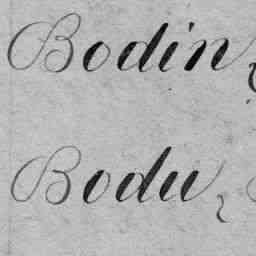 Bodin,
Bodu,